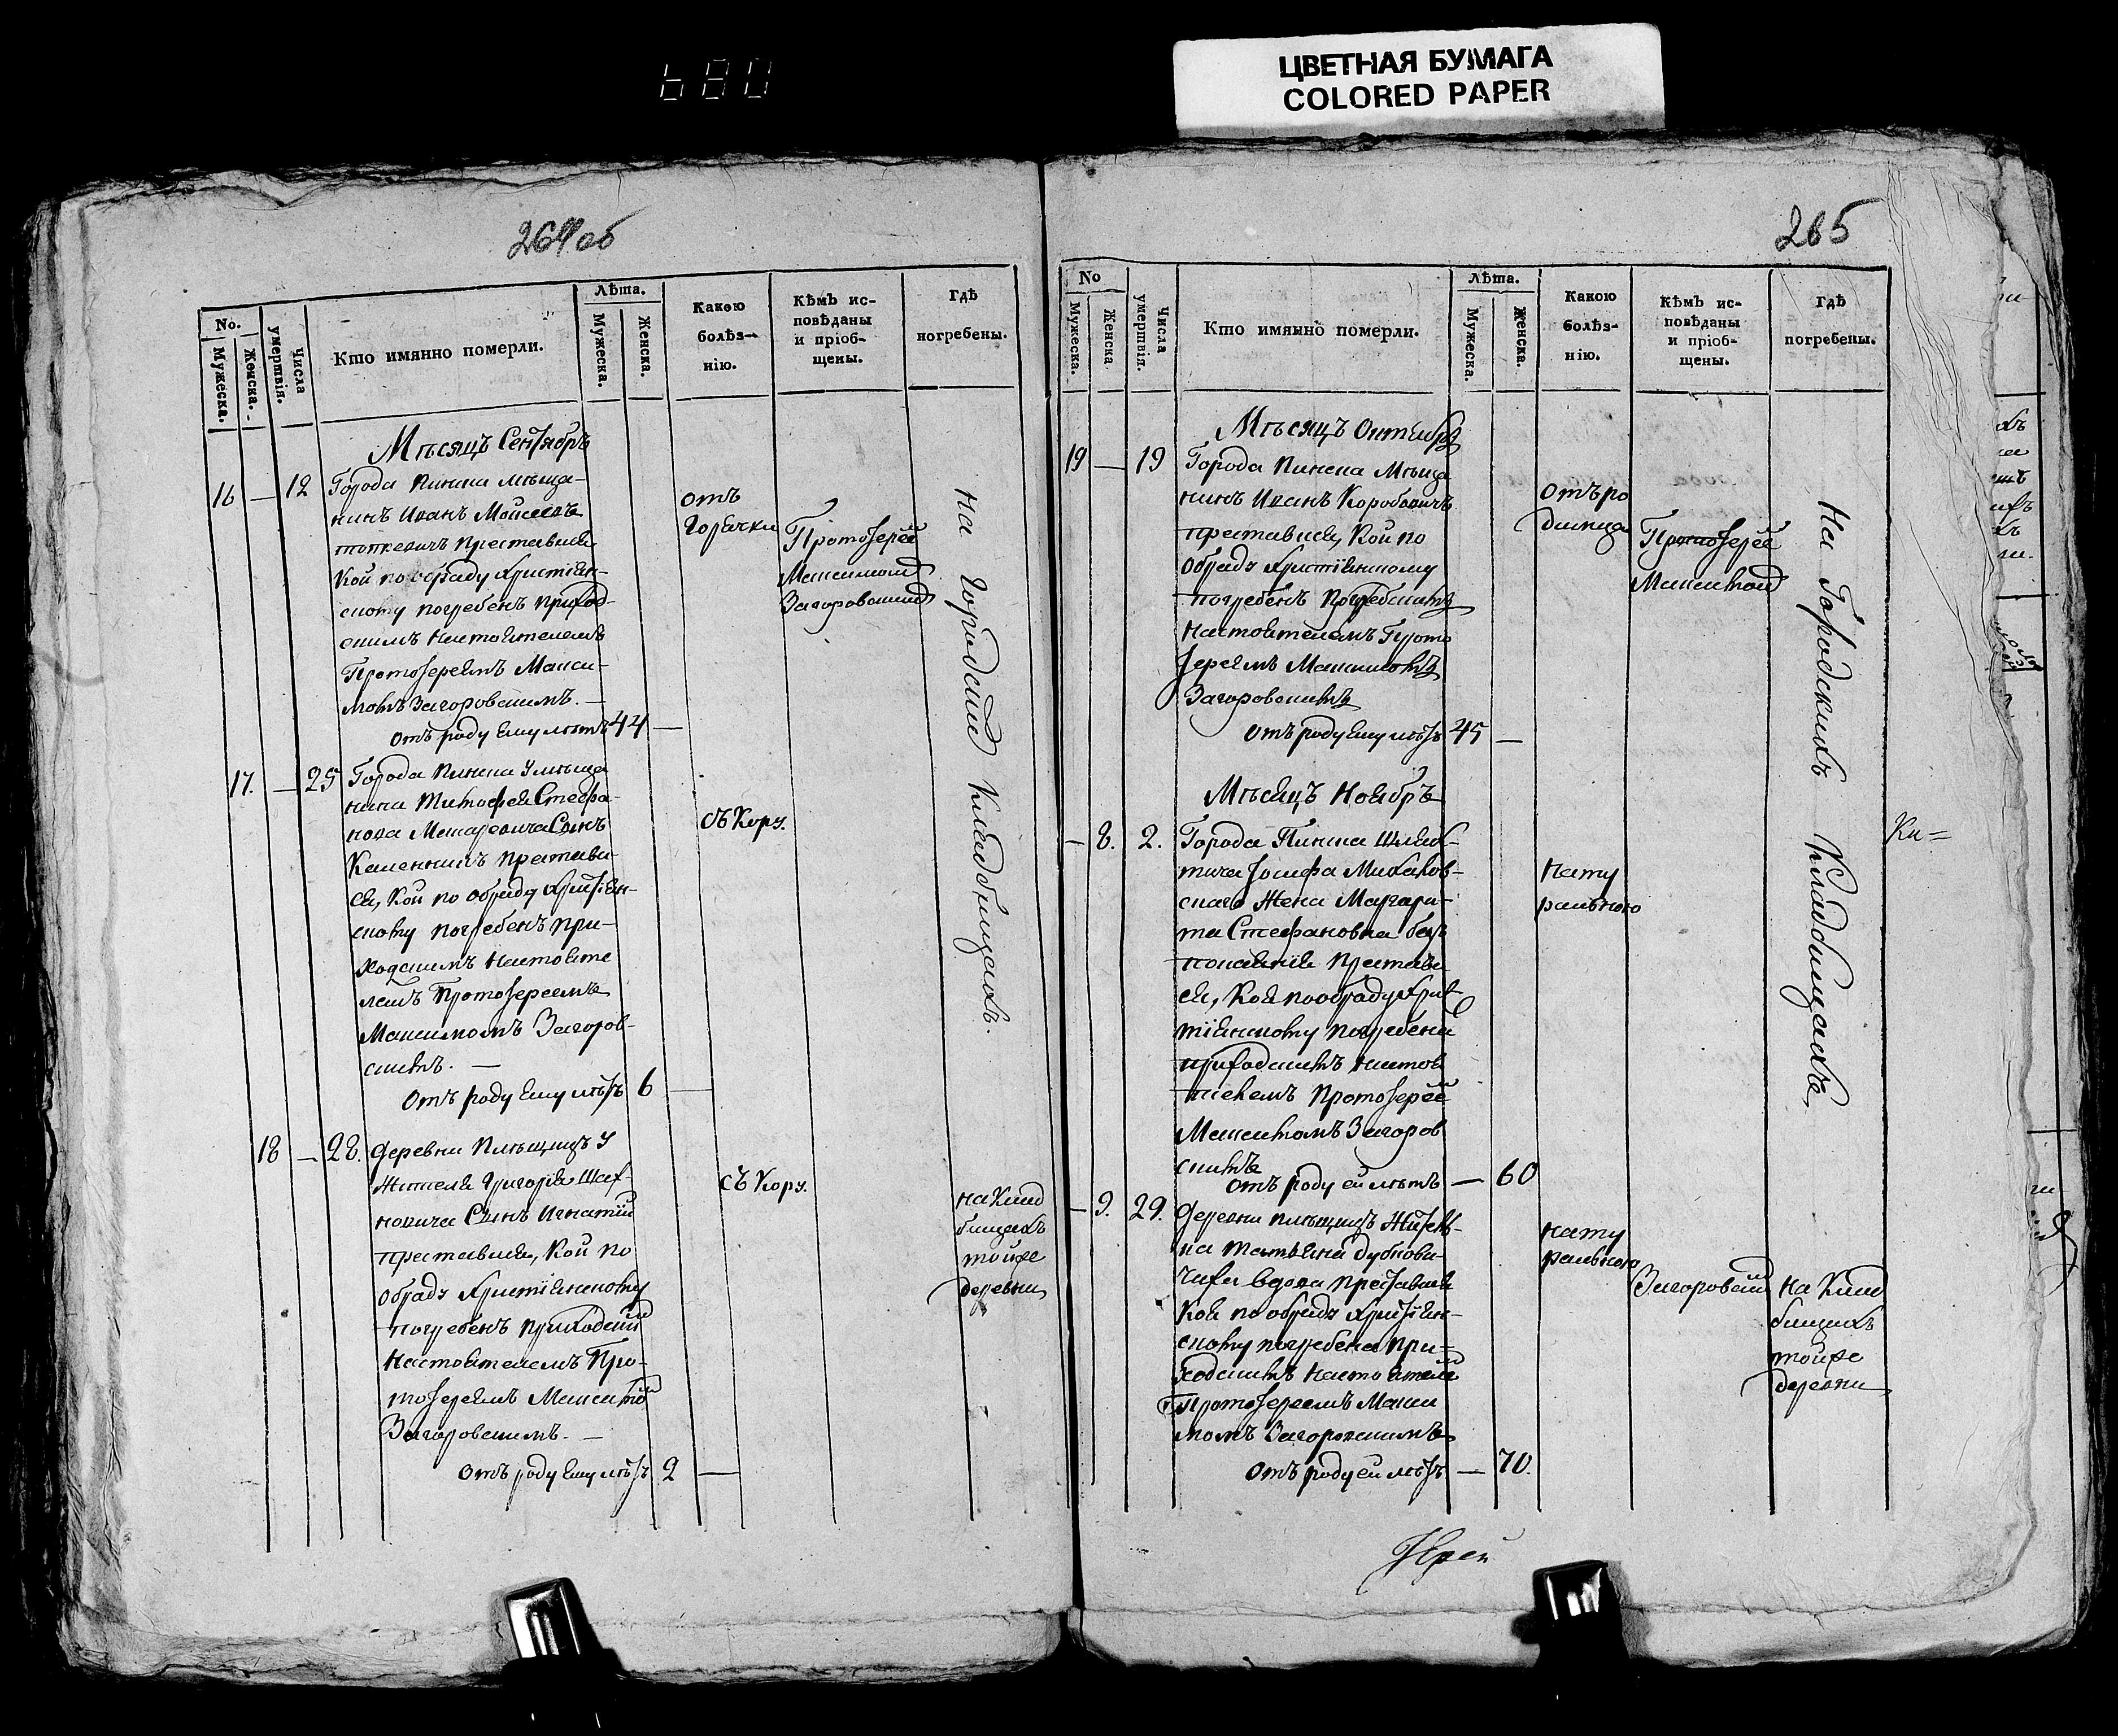 680
ЦВЕТНАЯ БУМАГА
COLORED PAPER
264 об
No.
Мужеска.
Женска.
Числа умертвія.
Кто имянно померли.
Лѣта.
Мужеска.
Женска.
Какою
болѣз-
нію.
Кѣмъ ис-
повѣданы
и пріоб-
щены.
Гдѣ
погребены.
Мѣсяцъ Сентябрь
16 — 12 Города Пинска мѣща-
нинъ Иванъ Моисеевъ
преставися
Кой по обряду христіян-
скому погребенъ приход-
скимъ настоятелемъ
Протоіереемъ Макси-
момъ Загоровскимъ. —
отъ роду ему лѣтъ 44 —
отъ
горячки
Протоіерей
Максимом
Загоровским
На городских кладбищахъ.
17. — 25 Города Пинска у мѣща
нина Тимофея Стефа-
нова Сынъ
преставил-
ся, Кой по обряду христіян-
скому погребенъ при-
ходскимъ настояте
лемъ Протоіереемъ
Максимомъ Загоров-
скимъ. —
отъ роду ему лѣтъ 6 —
съ Кору.
18 — 28. Деревни Плещицъ у
жителя Григорія Шах-
новича Сынъ Игнатій
преставися, Кой по
обряду христіянскому
погребенъ приходским
настоятелемъ Про-
тоіереемъ Максимо
Загоровскимъ. —
отъ роду ему лѣтъ 2 —
съ Кору.
на клад
бищахъ
тойже
деревни
265
No
Мужеска.
Женска
Числа умертвія.
Кто имянно померли.
Лѣта.
Мужеска.
Женска.
Какою
болѣз-
нію.
Кѣмъ ис-
повѣданы
и пріоб-
щены.
Гдѣ
погребены.
Мѣсяцъ Октябрь
19 — 19 Города Пинска Мѣща
нинъ Иванъ Коробовичъ
преставися, Кой по
обряду христіянскому
погребенъ
настоятелемъ Прото
іереемъ Максимомъ
Загоровскимъ
отъ роду ему лѣтъ 45 —
Отъ ро
димца
Протоіерей
Максимом
На Городскихъ Кладбищахъ
Мѣсяцъ Ноябрь
— 8. 2. Города Пинска Шлях-
тича Іосифа Михалов-
скаго Жена Маргари-
та Стефановна без
покаянія преставил
ся, Коя по обряду Хрис
тіянскому погребена
приходскимъ настоя
телемъ Протоіерее
Максимомъ Загоров
скимъ
отъ роду ей лѣтъ — 60
нату
ральною
Ки=
— 9. 29. Деревни Плещицъ Житель-
ка Татьяна Дубнови-
чиха вдова преставися
Коя по обряду христіян-
скому погребена при-
ходскимъ настоятеле
Протоіереемъ Макси
момъ Загоровскимъ
отъ роду ей лѣтъ — 70.
нату
ральною
Загоровским
на клад
бищахъ
тойже
деревни
Іерей